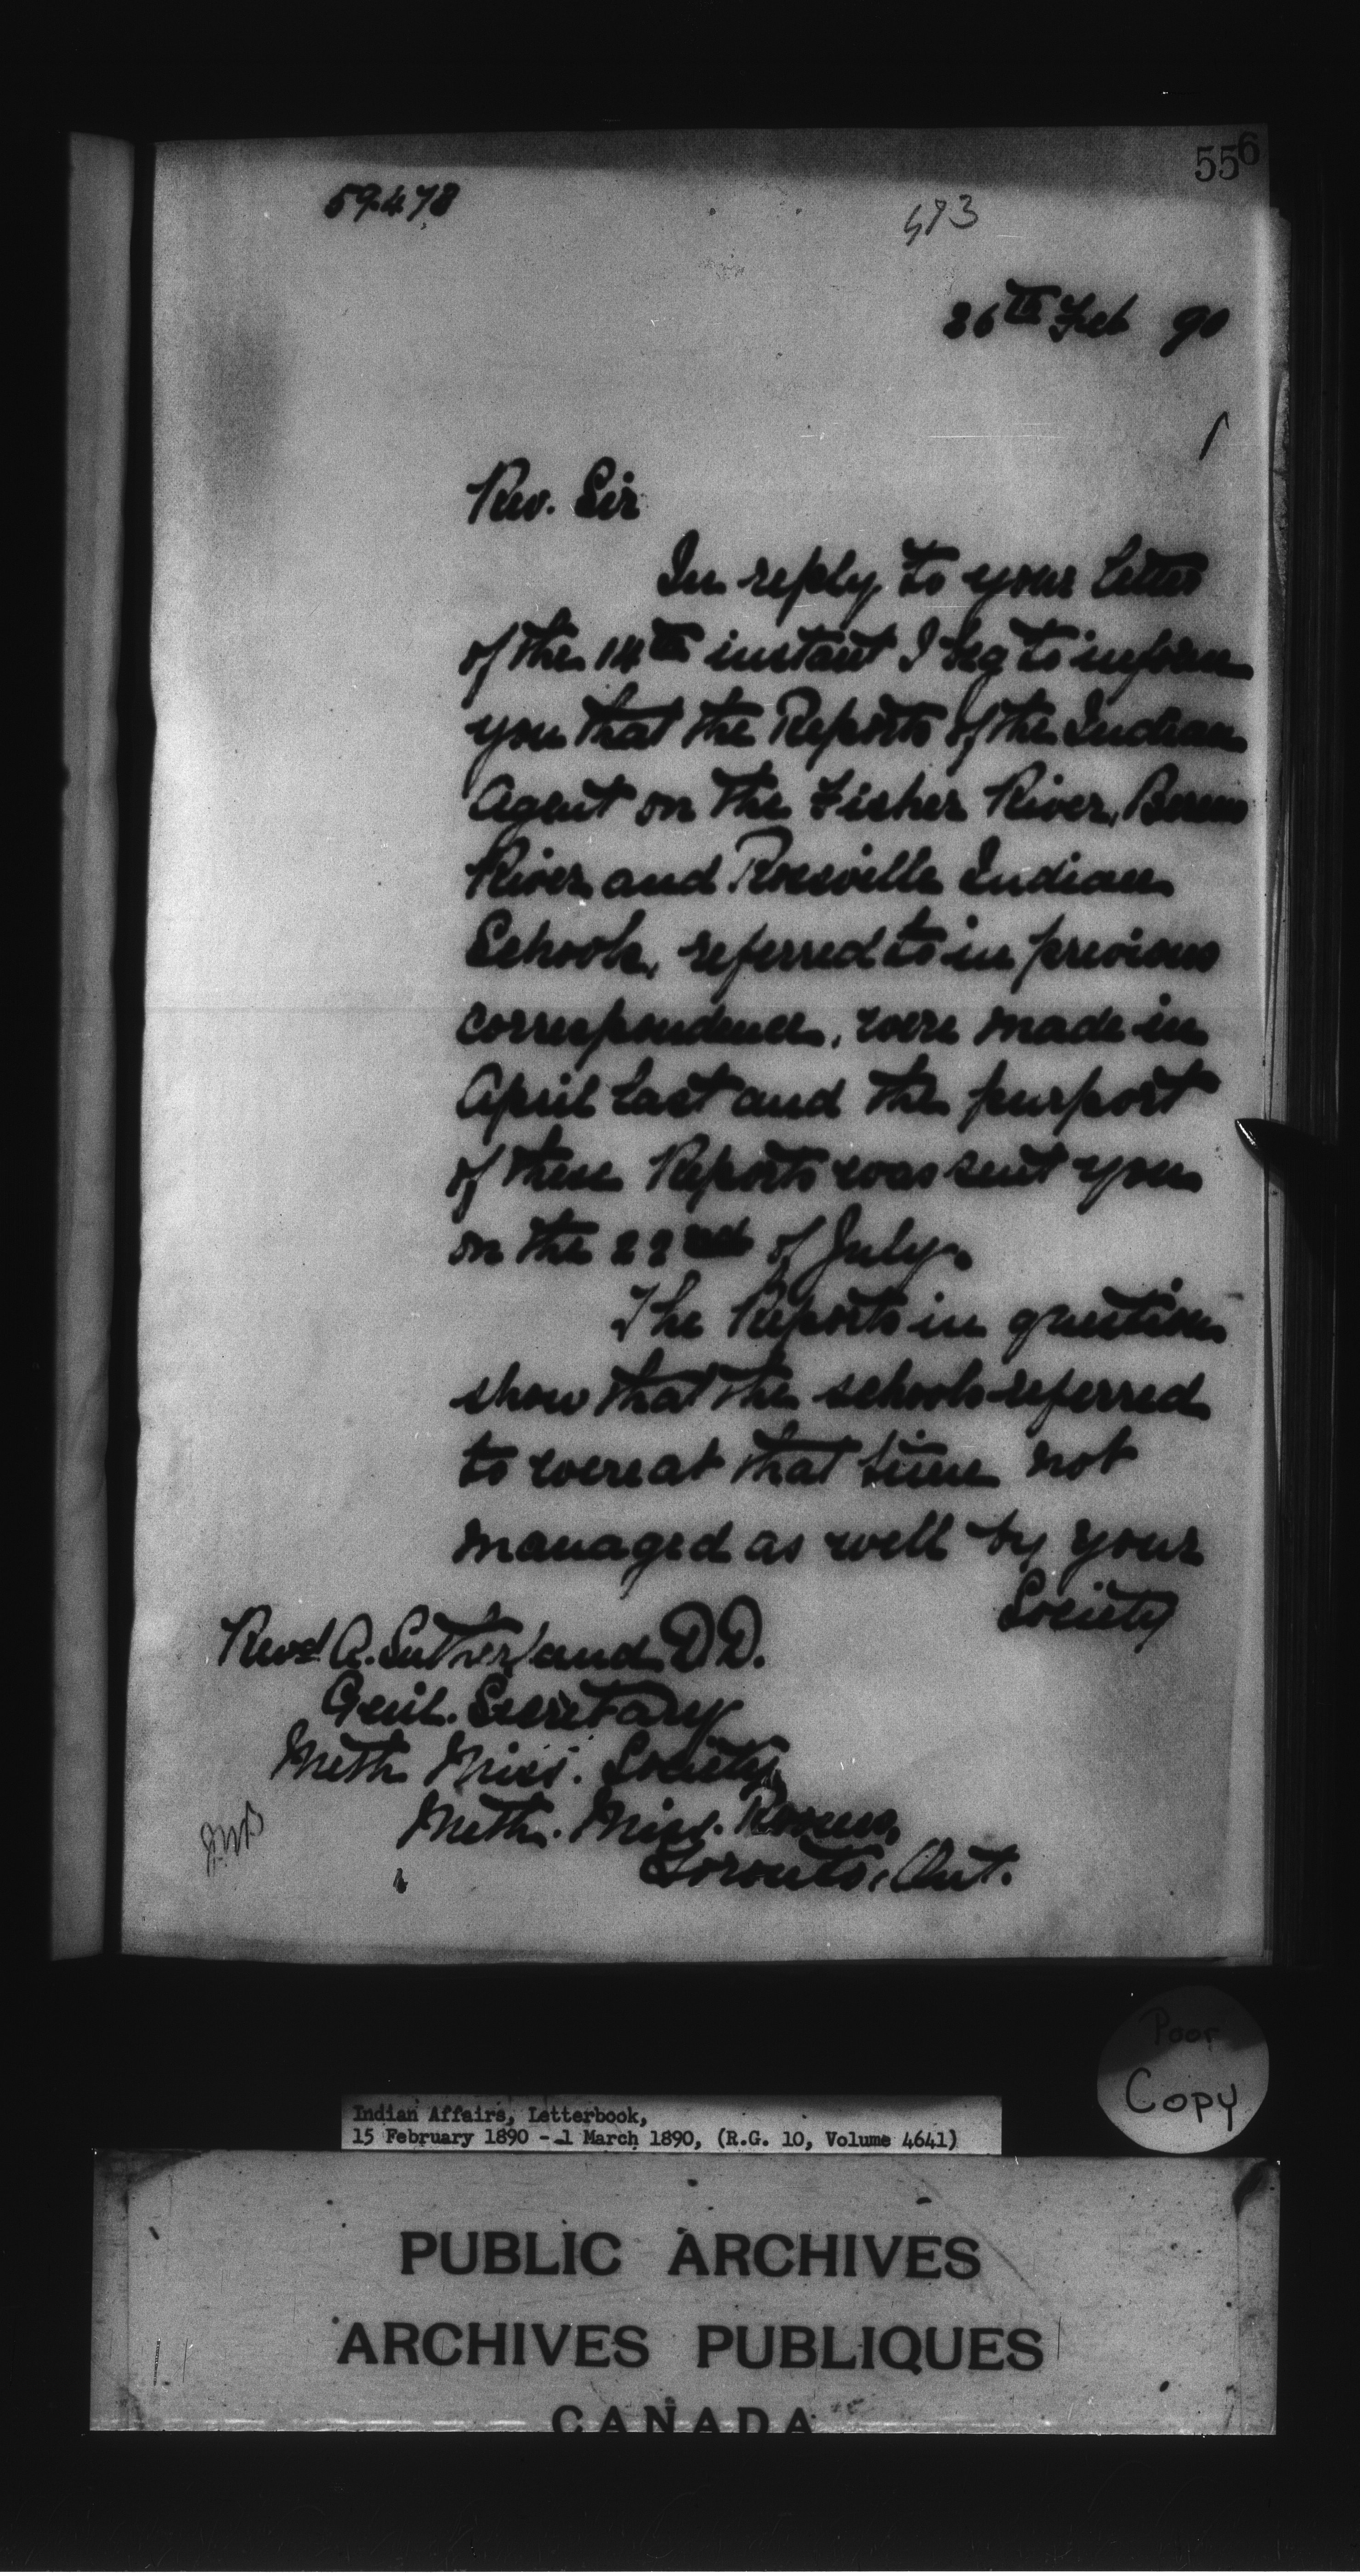 556
59478
26th Feb 90
Rev. Sir
In reply to your letter
of the 14th instant I beg to inform
you that the Reports of the Indian
Agent on the Fisher River, Berens
River and Rossville Indian
Schools, referred to in previous
correspondence, were made in
April last and the purport
of these Reports was sent you
on the 22nd of July.
The Reports in question
show that the schools referred
to were at that time not
managed as well by your
Society
Revd A. Sutherland D.D.
Genl. Secretary
Meth Miss. Society,
Meth. Miss. Rooms,
Toronto, Ont.
Poor
Copy
Indian Affairs, Letterbook,
15 February 1890 - 1 March 1890, (R.G. 10, Volume 4641)
PUBLIC ARCHIVES
ARCHIVES PUBLIQUES
CANADA